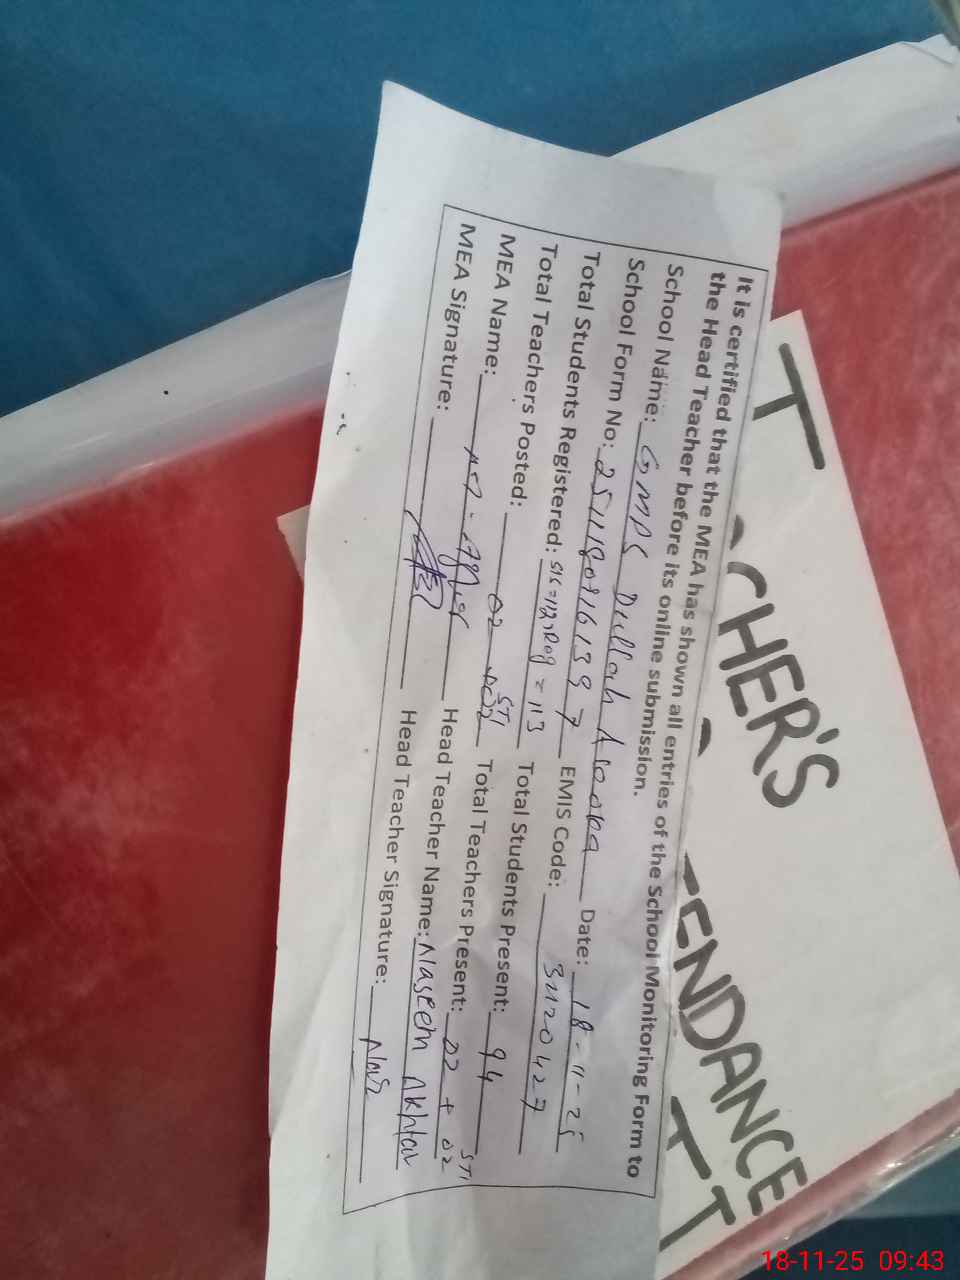 T CHER'S
TENDANCE
It is certified that the MEA has shown all entries of the School Monitoring Form to
the Head Teacher before its online submission.
School Name: GMPS Dullah Arooka Date: 18-11-25
School Form No: 25111809161397 EMIS Code: 31120427
Total Students Registered: SIS=112, Reg = 113 Total Students Present: 94
Total Teachers Posted: 02 STI 02 Total Teachers Present: 02 + 02 STI
MEA Name: Head Teacher Name: Naseem Akhtar
MEA Signature: Head Teacher Signature:
18-11-25 09:43